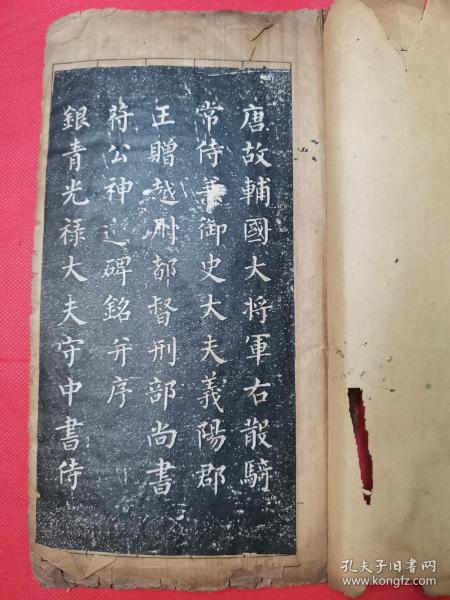 唐故輔國大将軍右散騎
常侍兼御史大夫義陽郡
王贈越州都督刑部尚書
苻公神道碑銘并序
銀青光禄大夫守中書侍
孔夫子旧书网
book.kongfz.com